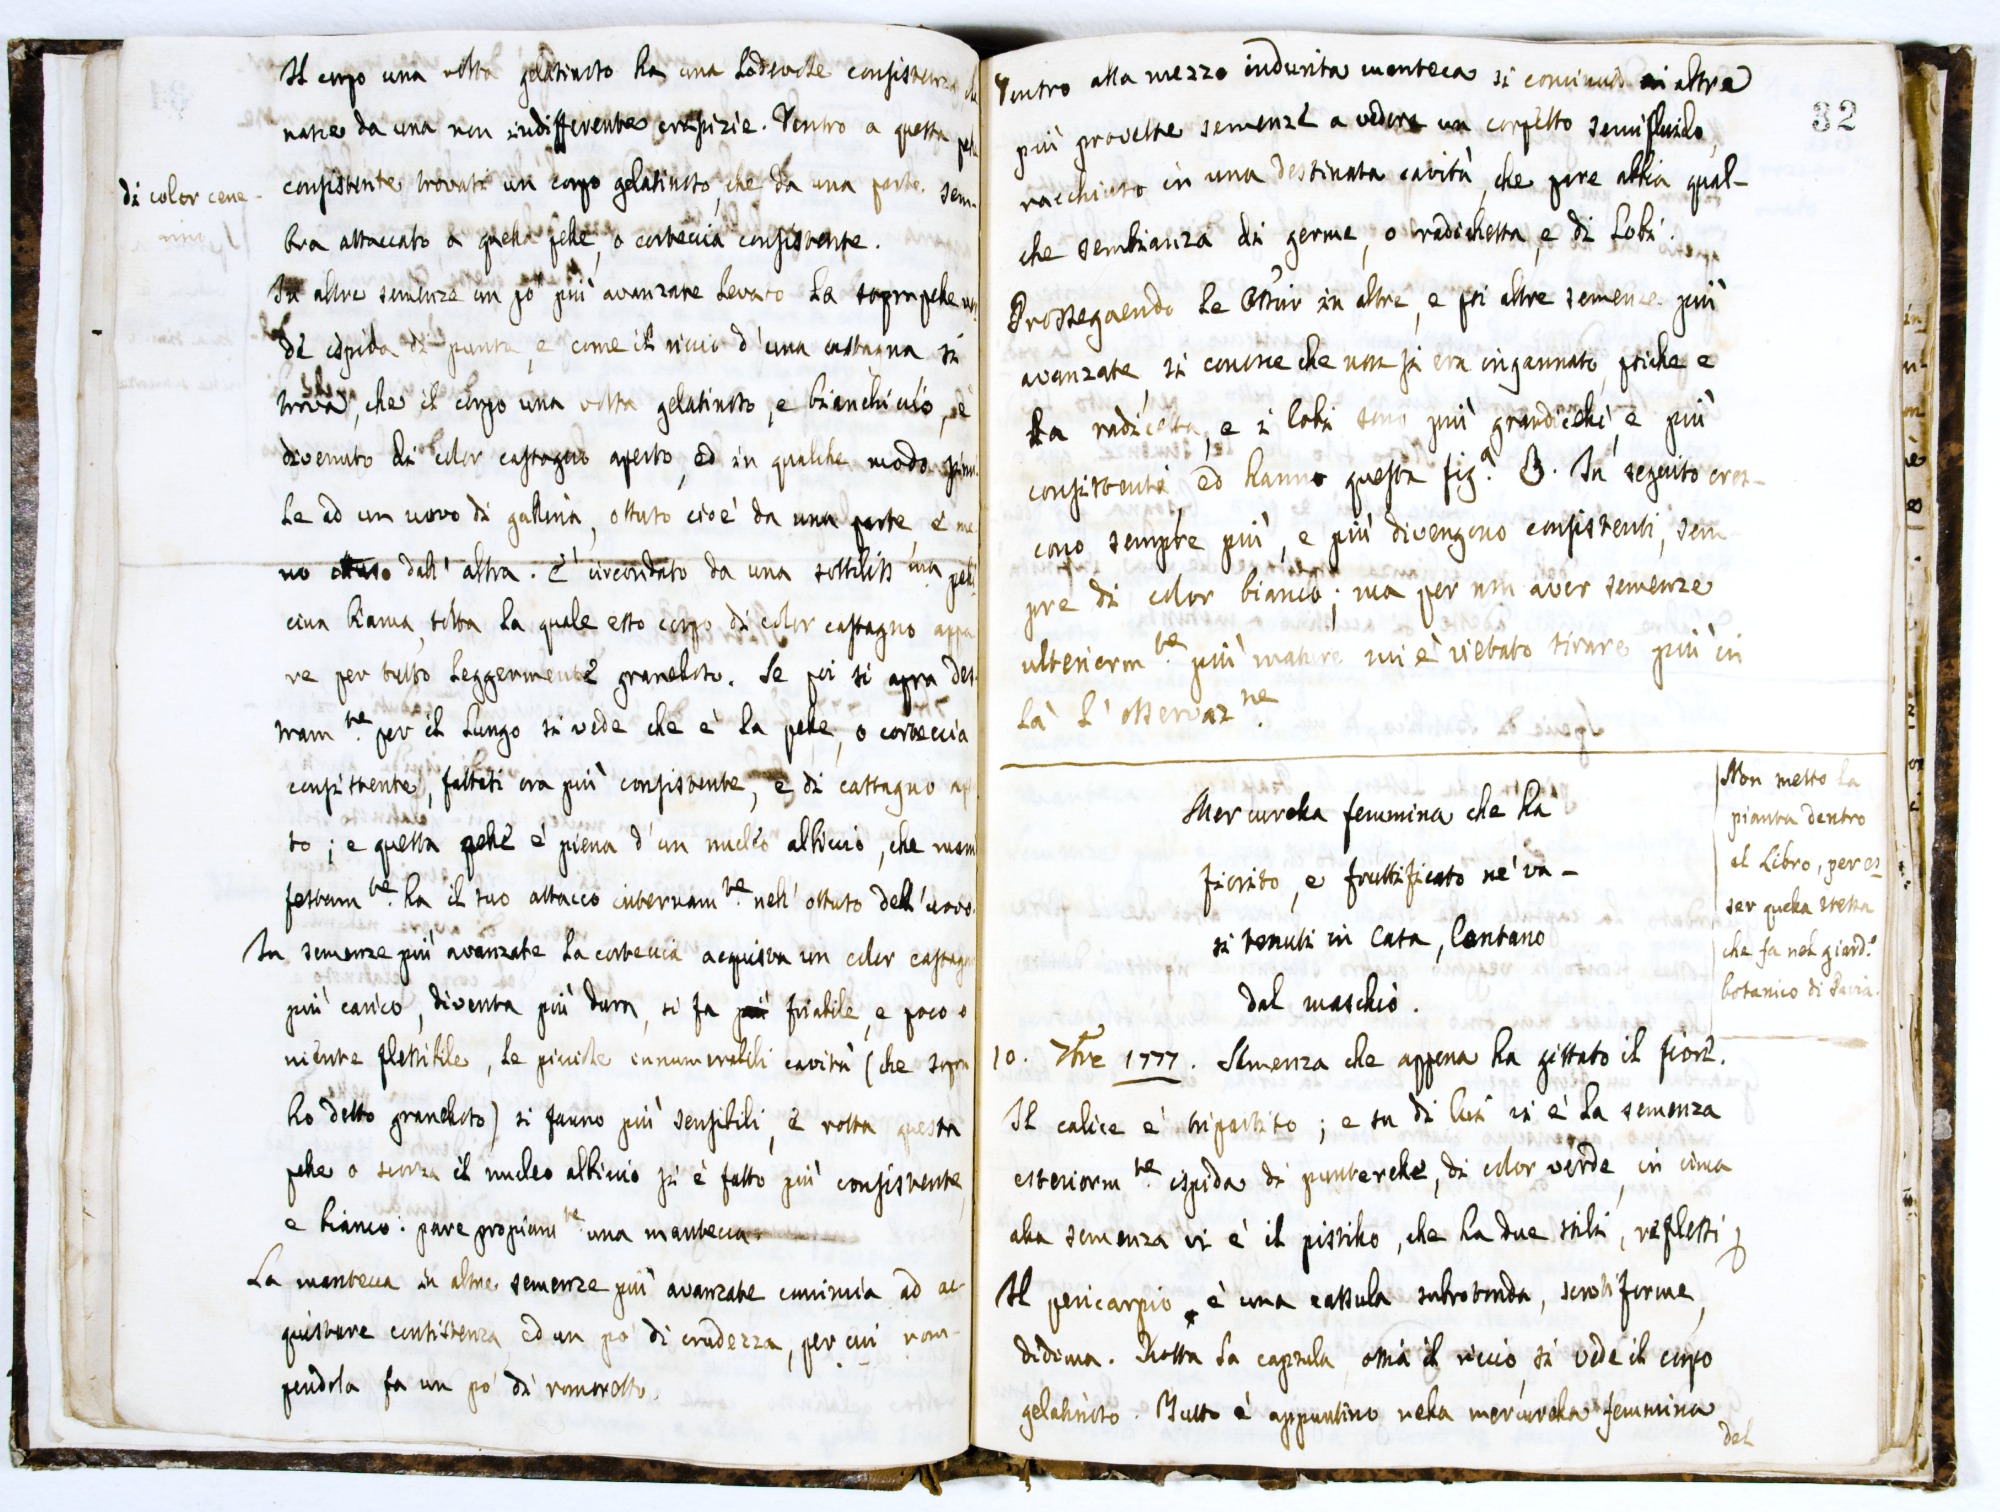 Il corpo una volta gelatinoso ha una lodevole consistenza
nata da una non indifferente crassizie. Dentro a questa pelle
consistente trovasi un corpo gelatinoso, che da una parte sem-
di color cene-
rino
bra attaccato a quella pelle, o corteccia consistente.
In altre semenze un po' più avanzate levato la sopra pelle
di ispida di punta, e come il riccio d'una castagna si
trova, che il corpo una volta gelatinoso, e bianchiccio, è
divenuto di color castagno aperto, ed in qualche modo simi
le ad un uovo di gallina, ottuso cioè da una parte, e me
no ottuso dall'altra. E' circondato da una sottiliss.ma pelli
cina bianca, tolta la quale esso corpo di color castagno appa
re per tutto leggermente granelloso. Se poi si apra des
tram.te per il lungo si vede che è la pelle, o corteccia
consistente, fattasi ora più consistente, e di castagno ap
to; e questa pelle è piena d'un nucleo albiccio, che mani
festam.te ha il suo attacco internam.te nell'ottuso dell'uovo.
In semenze più avanzate la corteccia acquista un color castagno
più carico, diventa più dura, si fa più friabile, e poco o
niente flessibile, le piccole innumerabili cavità (che sopra
ho detto granelloso) si fanno più sensibili, e rotta questa
pelle o scorza il nucleo albiccio si è fatto più consistente,
e bianco: pare propriam.te una mantecca.
La mantecca in altre semenze più avanzate comincia ad ac-
quistare consistenza, ed un po' di crudezza, per cui rom-
pendola fa un po' di romoretto.
32
Dentro alla mezzo indurita manteca si cominciò in altre
più provette semenze a vedere un corpetto semifluido,
racchiuso in una destinata cavità, che pare abbia qual-
che sembianza di germe, o radichetta, e di lobi.
Proseguendo le Oss.ni in altre, e poi altre semenze più
avanzate, si conosce che non si era ingannato, poiche e
la radicetta, e i lobi sono più grandicelli, e più
consistenti ed hanno questa fig.a B. In seguito cres-
cono sempre più, e più divengono consistenti, sem-
pre di color bianco; ma per non aver semenze
ulteriorm.te più mature mi è vietato tirare più in
là l'osservaz.ne
Mercurella femmina che ha
fiorito, e fruttificato ne' va-
si tenuti in Casa, lontano
dal maschio.
Non metto la
pianta dentro
al Libro, per es
ser quella stessa
che fa nel giard.o
botanico di Pavia.
10. 7bre 1777. Semenza che appena ha gittato il fiore.
Il calice è tripartito; e su di lui vi è la semenza
esteriorm.te ispida di punterelle, di color verde, in cima
alla semenza vi è il pistillo, che ha due stili, reflessi
Il pericarpio è una cassula subrotonda, scrotiforme,
didima. Rotta la capsula, ossia il riccio, si vede il corpo
gelatinoso. Tutto è appuntino nella mercurella femmina
del